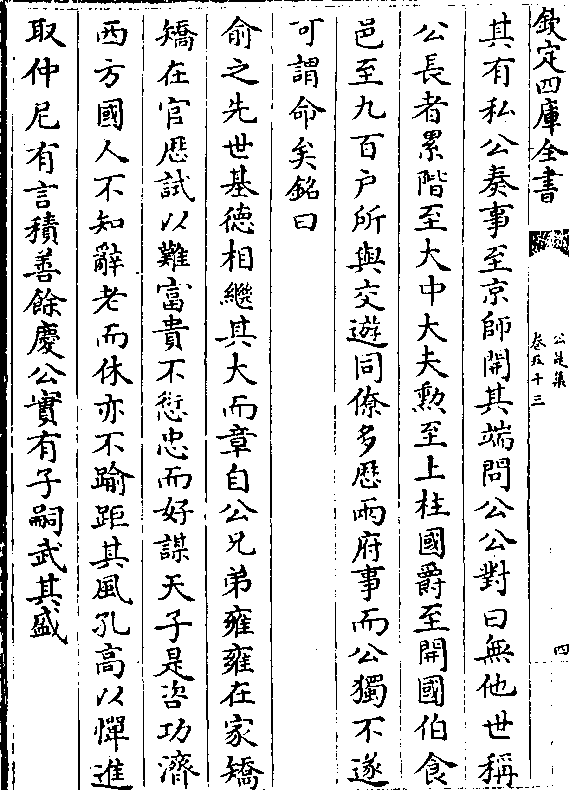 欽定四庫全書
公是集
卷五十三
四
其有私公奏事至京師開其端問公公對曰無他世稱
公長者累階至大中大夫勲至上柱國爵至開國伯食
邑至九百户所與交遊同僚多歴兩府事而公獨不遂
可謂命矣銘曰
俞之先世基德相繼其大而章自公兄弟雍雍在家矯
矯在官歴試以難富貴不愆忠而好謀天子是咨功濟
西方國人不知辭老而休亦不踰距其風孔高以憚進
取仲尼有言積善餘慶公實有子嗣武其盛